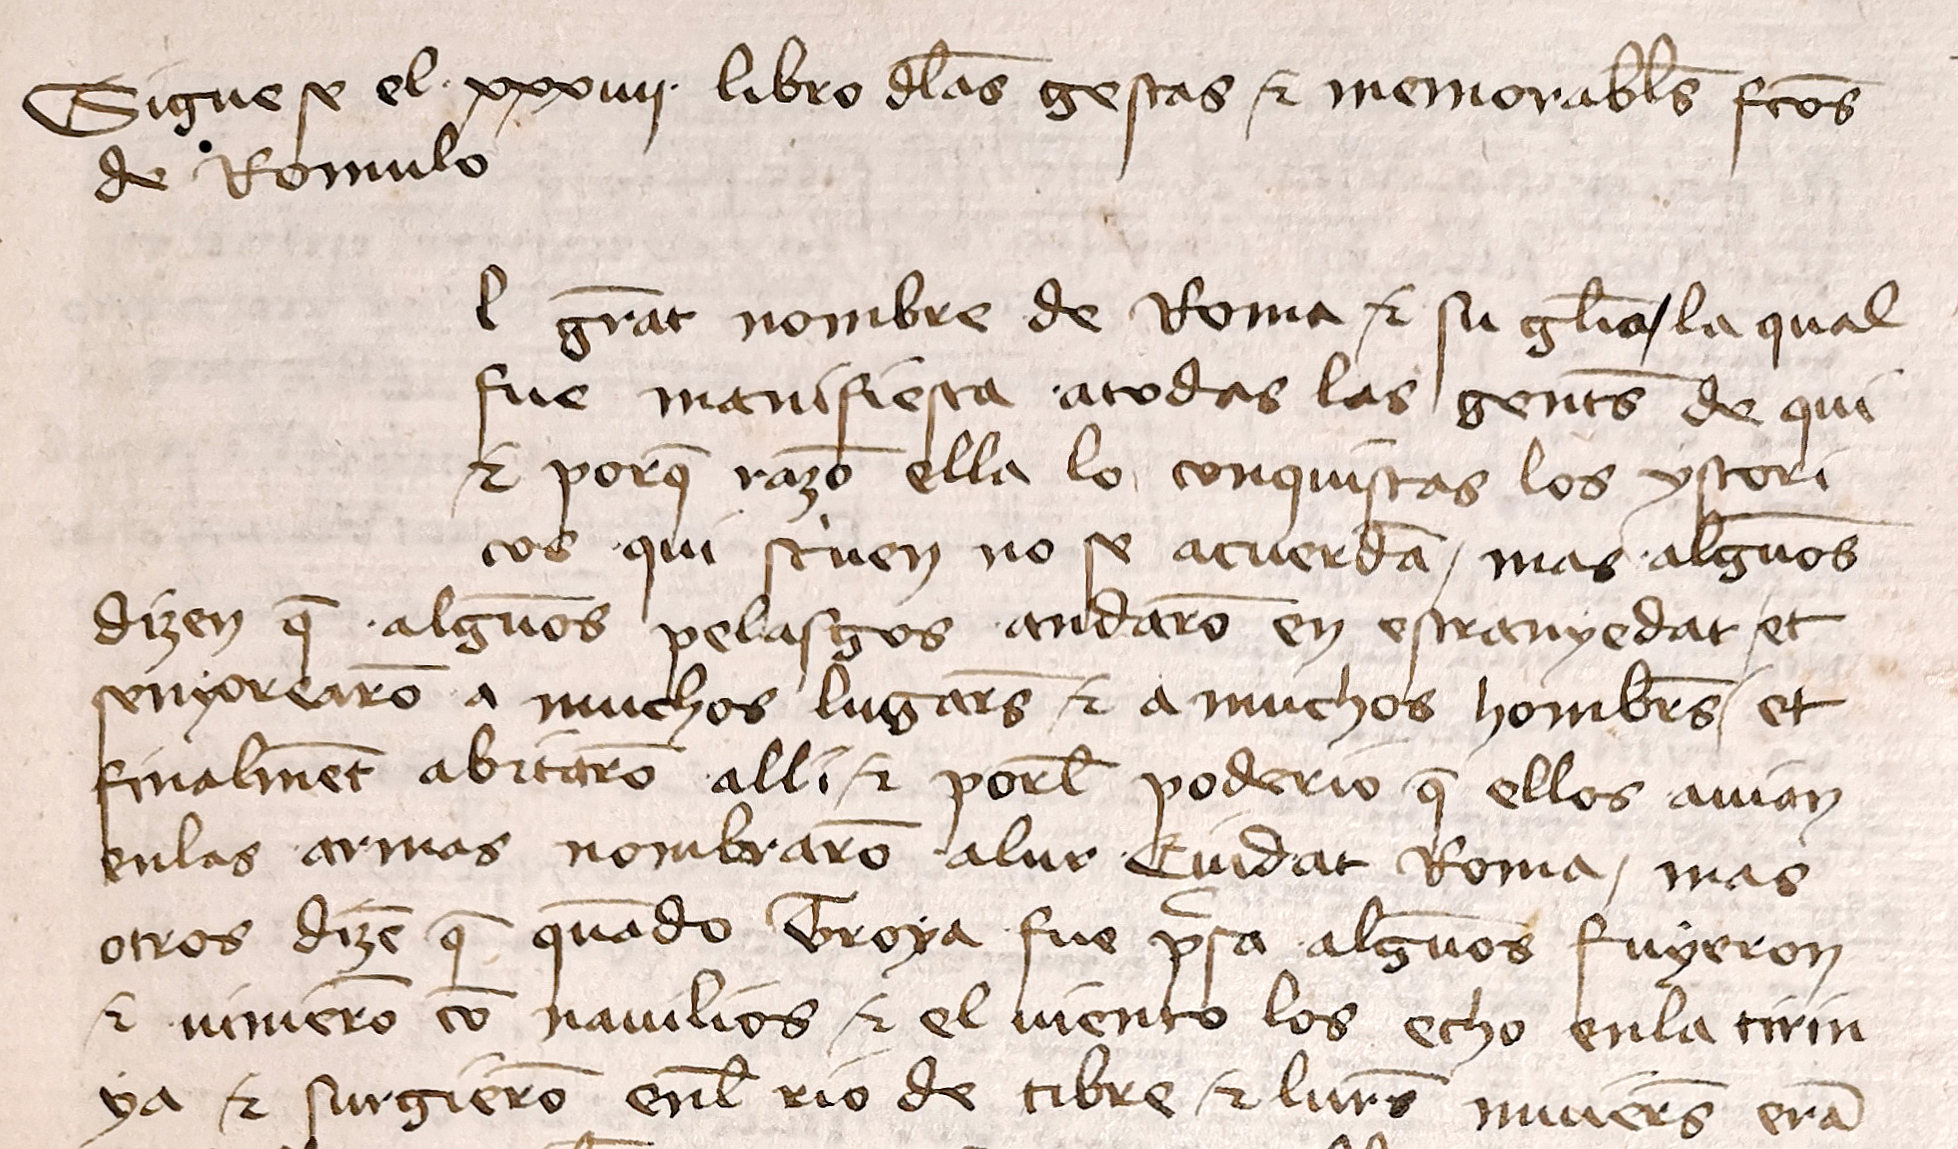 Sigue se el .xxxviiij. libro dlãs gestas ⁊ memorabl̃s fc̃os
de Romulo
l gr̃at nombre de Roma ⁊ su gl̃ia / la qual
fue manifiesta atodas las gent̃s de qui
⁊ porq̃ razõ ella lo conquistas los ystori
cos qui sc̾uen no se acuerdã / mas alg̃uos
dizen q̃ alg̃uos pelasgos andarõ en estranyedat / et
senyorearõ a muchos lugar̃s ⁊ a muchos hombr̃s / et
finalmẽt abitarõ alli ⁊ porl̃ poderio q̃ ellos auian
enlas armas nombrarõ alur Ciudat Roma / mas
otros dizẽ q̃ quãdo Troya fue p̃sa alg̃uos fuyeron
⁊ vinierõ cõ nauilios ⁊ el viento los echo enla tirin
ya ⁊ surgierõ enl̃ rio de tibre ⁊ lur̃s muier̃s erã